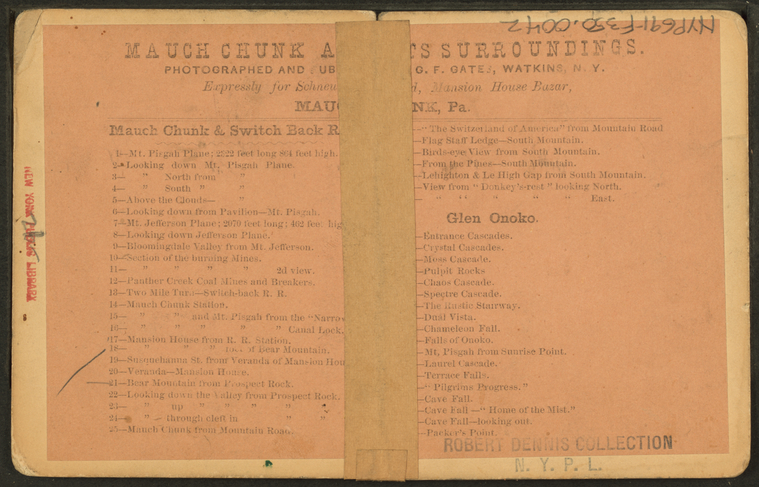 NYPG91-F350-0042
MAUCH CHUNK A TS SURROUNDINGS.
PHOTOGRAPHED AND UB G. F. GATES, WATKINS, N. Y.
Expressly for Schne d, Mansion House Bazar,
MAU NK, Pa.
Mauch Chunk & Switch Back R
1—Mt. Pisgah Plane; 2322 feet long 864 feet high.
2—Looking down Mt. Pisgah Plane.
3— " North from "
4— " South " "
5—Above the Clouds— "
6—Looking down from Pavilion—Mt. Pisgah.
7—Mt. Jefferson Plane; 2070 feet long; 462 feet hig
8—Looking down Jefferson Plane.
9—Bloomingdale Valley from Mt. Jefferson.
10—Section of the burning Mines.
11— " " " " 2d view.
12—Panther Creek Coal Mines and Breakers.
13—Two Mile Turn—Switch-back R. R.
14—Mauch Chunk Station.
15— " " and Mt. Pisgah from the "Narro
16— " " " " " Canal Lock.
17—Mansion House from R. R. Station.
18— " " " foot of Bear Mountain.
19—Susquehanna St. from Veranda of Mansion Hou
20—Veranda—Mansion House.
21—Bear Mountain from Prospect Rock.
22—Looking down the Valley from Prospect Rock.
23— " up " " " "
24— " — through cleft in " "
25—Mauch Chunk from Mountain Road.
—"The Switzerland of America" from Mountain Road
—Flag Staff Ledge—South Mountain.
—Birds-eye View from South Mountain.
—From the Pines—South Mountain.
—Lehighton & Le High Gap from South Mountain.
—View from "Donkey's-rest" looking North.
" " " " " East.
Glen Onoko.
—Entrance Cascades.
—Crystal Cascades.
—Moss Cascade.
—Pulpit Rocks
—Chaos Cascade.
—Spectre Cascade.
—The Rustic Stairway.
—Dual Vista.
—Chameleon Fall.
—Falls of Onoko.
—Mt. Pisgah from Sunrise Point.
—Laurel Cascade.
—Terrace Falls.
—"Pilgrims Progress."
—Cave Fall.
—Cave Fall—"Home of the Mist."
—Cave Fall—looking out.
—Packer's Point.
ROBERT DENNIS COLLECTION
N. Y. P. L.
NEW YORK PUBLIC LIBRARY